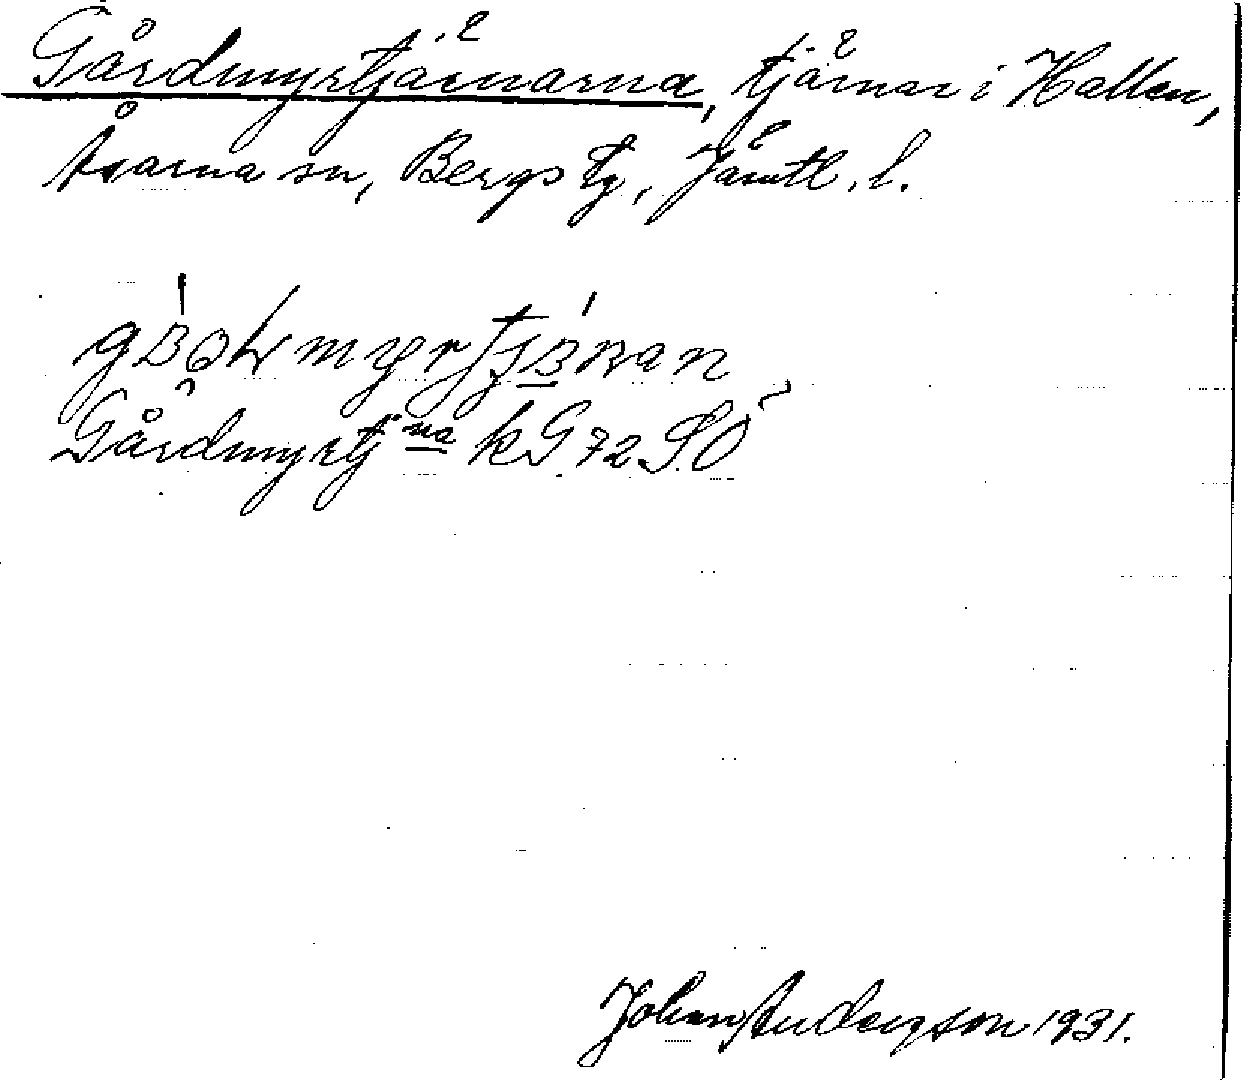 Gårdmyrtjärnarna, tjärnar i Hallen,
Åsarna sn, Bergs tg, Jämtl. l.
Gårdmyrtjna kG. 72 S.O
Johan Anderzson 1931.